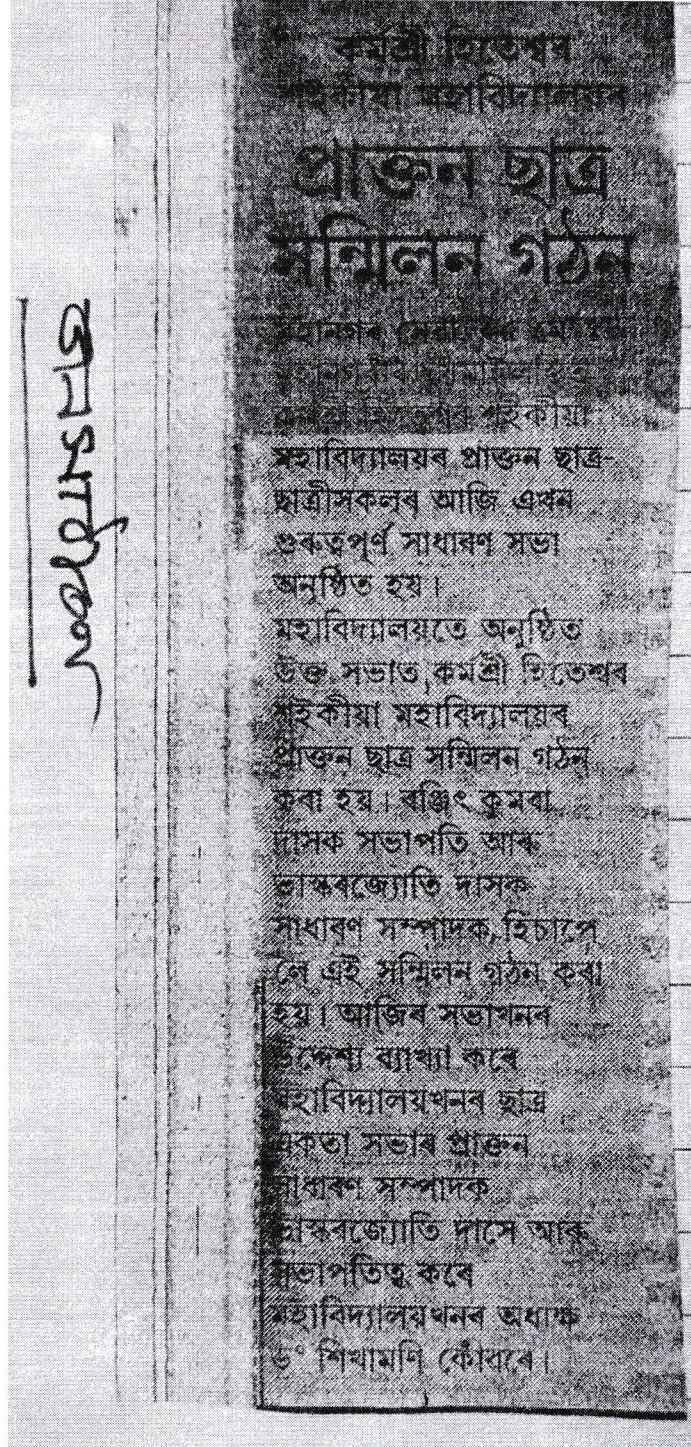 কৰ্মশ্ৰী হিতেশ্বৰ
শইকীয়া মহাবিদ্যালয়ৰ
প্ৰাক্তন ছাত্ৰ
সন্মিলন গঠন
শইকীয়া
মহাবিদ্যালয়ৰ প্ৰাক্তন ছাত্ৰ-
ছাত্ৰীসকলৰ আজি এখন
গুৰুত্বপূৰ্ণ সাধাৰণ সভা
অনুষ্ঠিত হয়।
মহাবিদ্যালয়তে অনুষ্ঠিত
উক্ত সভাত কৰ্মশ্ৰী হিতেশ্বৰ
শইকীয়া মহাবিদ্যালয়ৰ
প্ৰাক্তন ছাত্ৰ সন্মিলন গঠন
কৰা হয়। ৰঞ্জিৎ কুমৰা
দাসক সভাপতি আৰু
ভাস্কৰজ্যোতি দাসক
সাধাৰণ সম্পাদক হিচাপে
লৈ এই সন্মিলন গঠন কৰা
হয়। আজিৰ সভাখনৰ
উদ্দেশ্য ব্যাখ্যা কৰে
মহাবিদ্যালয়খনৰ ছাত্ৰ
একতা সভাৰ প্ৰাক্তন
সাধাৰণ সম্পাদক
ভাস্কৰজ্যোতি দাসে আৰু
সভাপতিত্ব কৰে
মহাবিদ্যালয়খনৰ অধ্যক্ষ
ড° শিখামণি কোঁৱৰে।